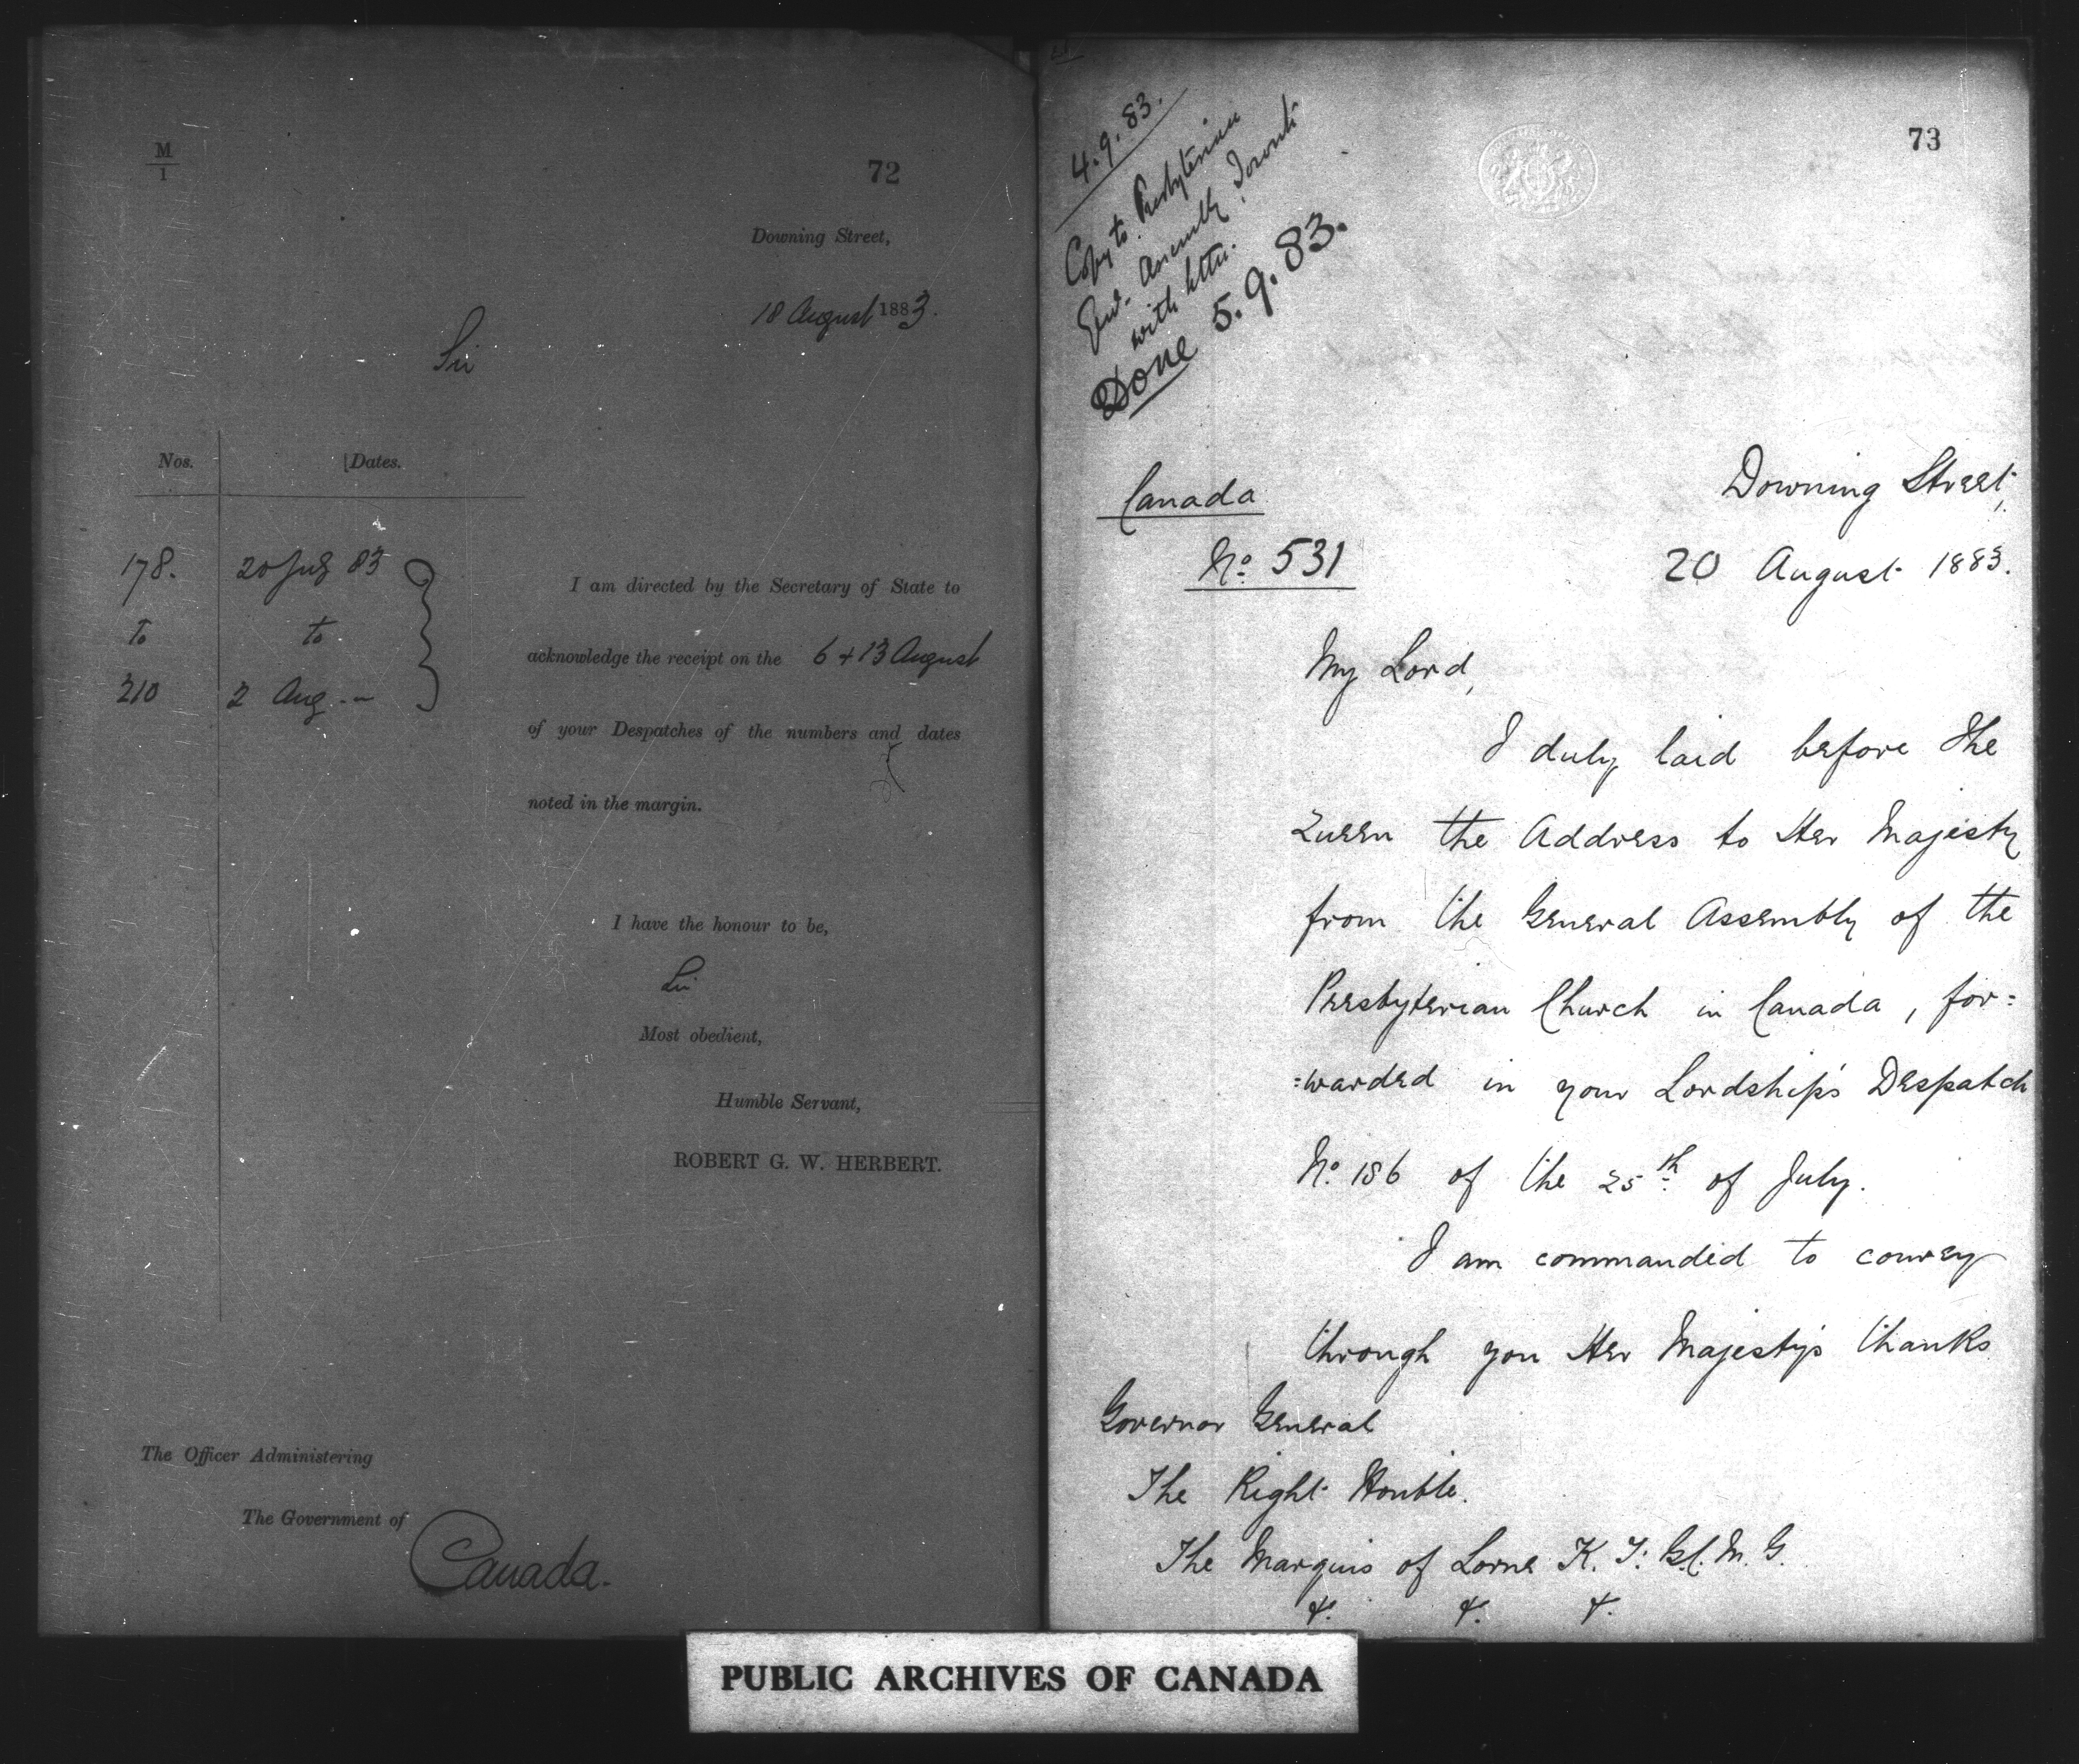 M
1
72
Downing Street,
18 August 1883.
Sir
Nos. Dates.
178. 20 July 83
to to
210 2 Aug. —
I am directed by the Secretary of State to
acknowledge the receipt on the 6 + 13 August
of your Despatches of the numbers and dates
noted in the margin.
I have the honour to be,
Sir
Most obedient,
Humble Servant,
ROBERT G. W. HERBERT.
The Officer Administering
The Government of
Canada.
73
4.9.83.
Copy to Presbyterian
Genl. Assembly, Toronto
with letter.
Done 5.9.83.
Canada
No. 531
Downing Street,
20 August 1883.
My Lord,
I duly laid before The
Queen the Address to Her Majesty
from the General Assembly of the
Presbyterian Church in Canada, for=
=warded in your Lordship's Despatch
No. 186 of the 25th of July.
I am commanded to convey
through you Her Majesty's thanks
Governor General
The Right Honble.
The Marquis of Lorne K.T: G.C.M.G.
&. &. &.
PUBLIC ARCHIVES OF CANADA